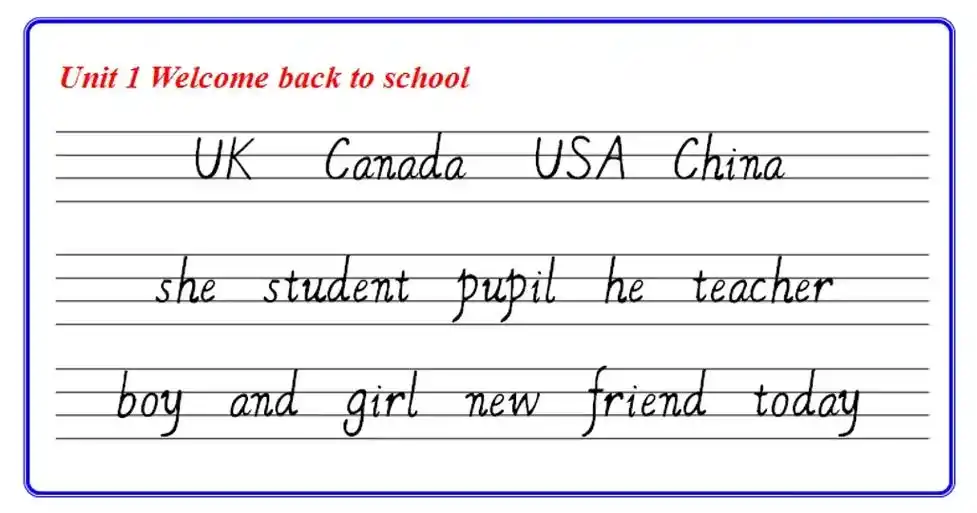 Unit 1 Welcome back to school
UK Canada USA China
she student pupil he teacher
boy and girl new friend today